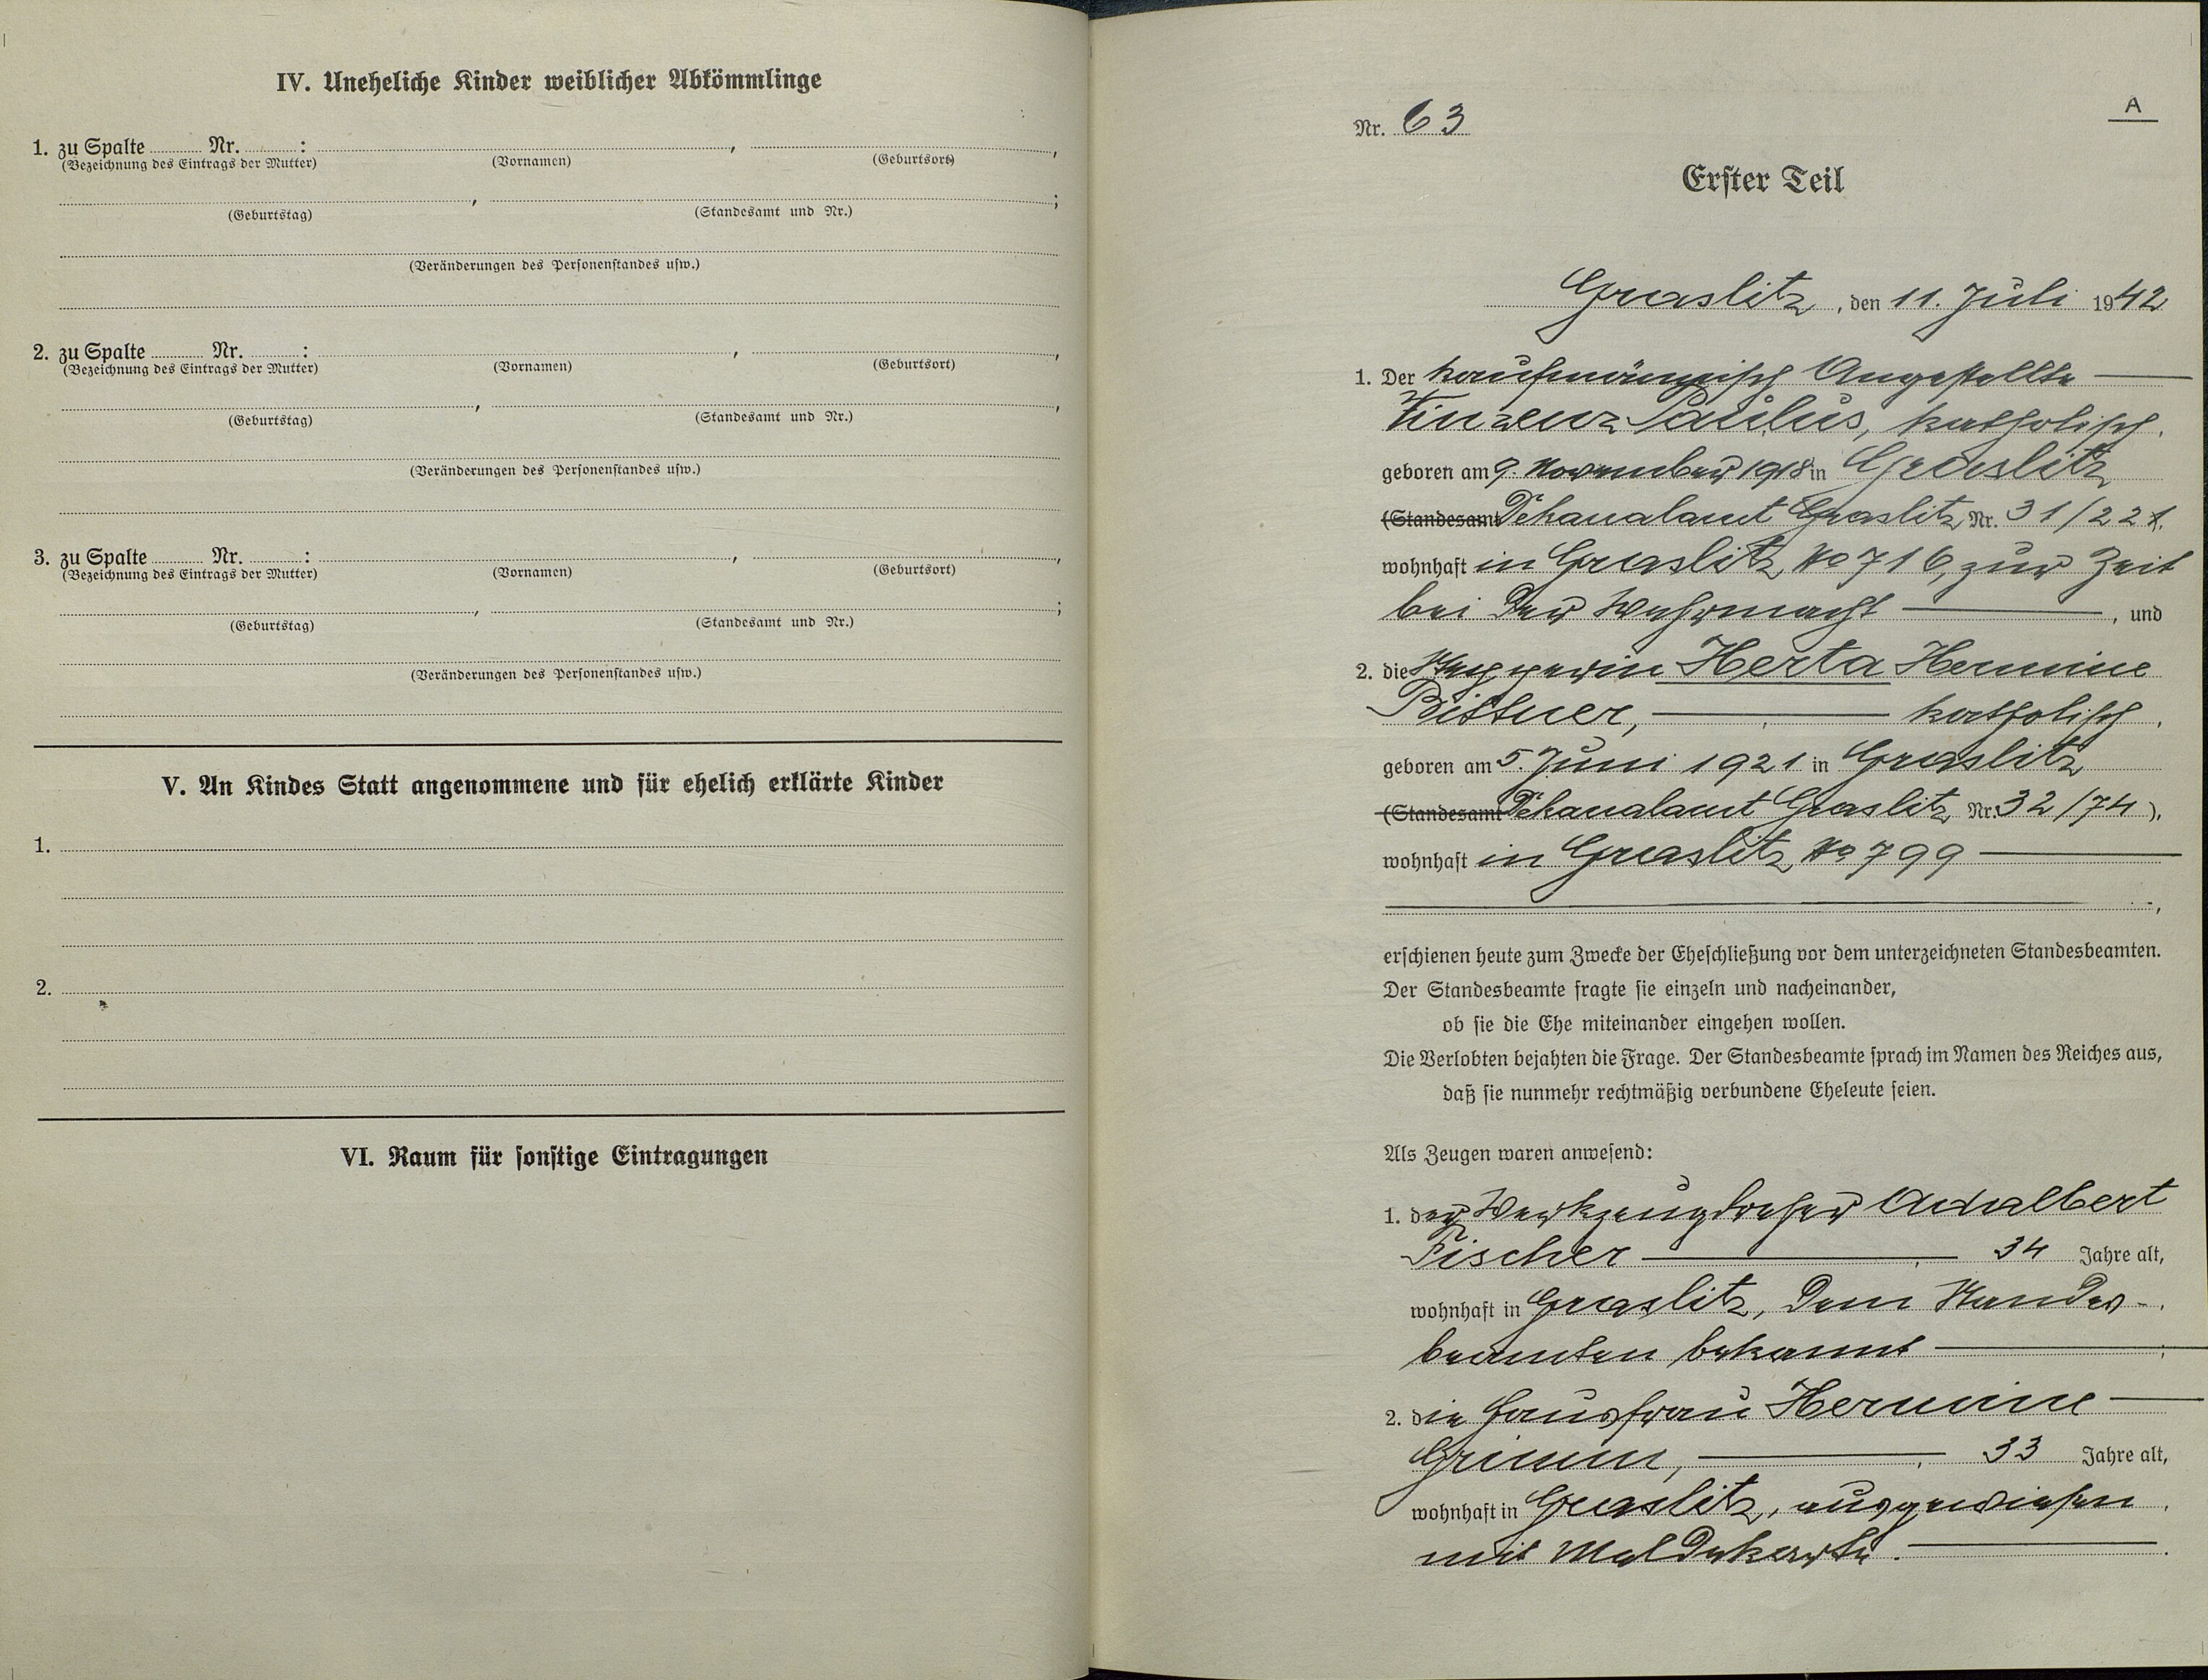 IV. Uneheliche Kinder weiblicher Abkömmlinge
1. zu Spalte ........ Nr. ........ : ........ , ........ ,
(Bezeichnung des Eintrags der Mutter) (Vornamen) (Geburtsort)
........ , ........ ;
(Geburtstag) (Standesamt und Nr.)
(Veränderungen des Personenstandes usw.)
2. zu Spalte ........ Nr. ........ : ........ , ........ ,
(Bezeichnung des Eintrags der Mutter) (Vornamen) (Geburtsort)
........ , ........ ,
(Geburtstag) (Standesamt und Nr.)
(Veränderungen des Personenstandes usw.)
3. zu Spalte ........ Nr. ........ : ........ , ........ ,
(Bezeichnung des Eintrags der Mutter) (Vornamen) (Geburtsort)
........ , ........ ;
(Geburtstag) (Standesamt und Nr.)
(Veränderungen des Personenstandes usw.)
V. An Kindes Statt angenommene und für ehelich erklärte Kinder
1.
2.
VI. Raum für sonstige Eintragungen
A
Nr. 63
Erster Teil
Graslitz, den 11. Juli 1942
1. Der kaufmännisch Angestellte
Vinzenz Paulus, katholisch,
geboren am 9. November 1918 in Graslitz
(Standesamt Dekanalamt Graslitz Nr. 31/221),
wohnhaft in Graslitz No 716, zur Zeit
bei der Wehrmacht, und
2. die Herta Hermine
Bittner, katholisch,
geboren am 5. Juni 1921 in Graslitz
(Standesamt Dekanalamt Graslitz Nr. 32/74),
wohnhaft in Graslitz No 799
,
erschienen heute zum Zwecke der Eheschließung vor dem unterzeichneten Standesbeamten.
Der Standesbeamte fragte sie einzeln und nacheinander,
ob sie die Ehe miteinander eingehen wollen.
Die Verlobten bejahten die Frage. Der Standesbeamte sprach im Namen des Reiches aus,
daß sie nunmehr rechtmäßig verbundene Eheleute seien.
Als Zeugen waren anwesend:
1. der Werkzeugdreher Adalbert
Fischer, 34 Jahre alt,
wohnhaft in Graslitz, dem Standes-
beamten bekannt;
2. die Hausfrau Hermine
Grimm, 33 Jahre alt,
wohnhaft in Graslitz, ausgewiesen
mit Meldekarte.